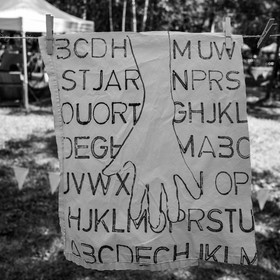 BCDH MUW
STJAR NPRS
OUORT GHJKL
DEGH MABC
JVWX N OP
HJKLMUPRSTU
ABCDECH JKLM